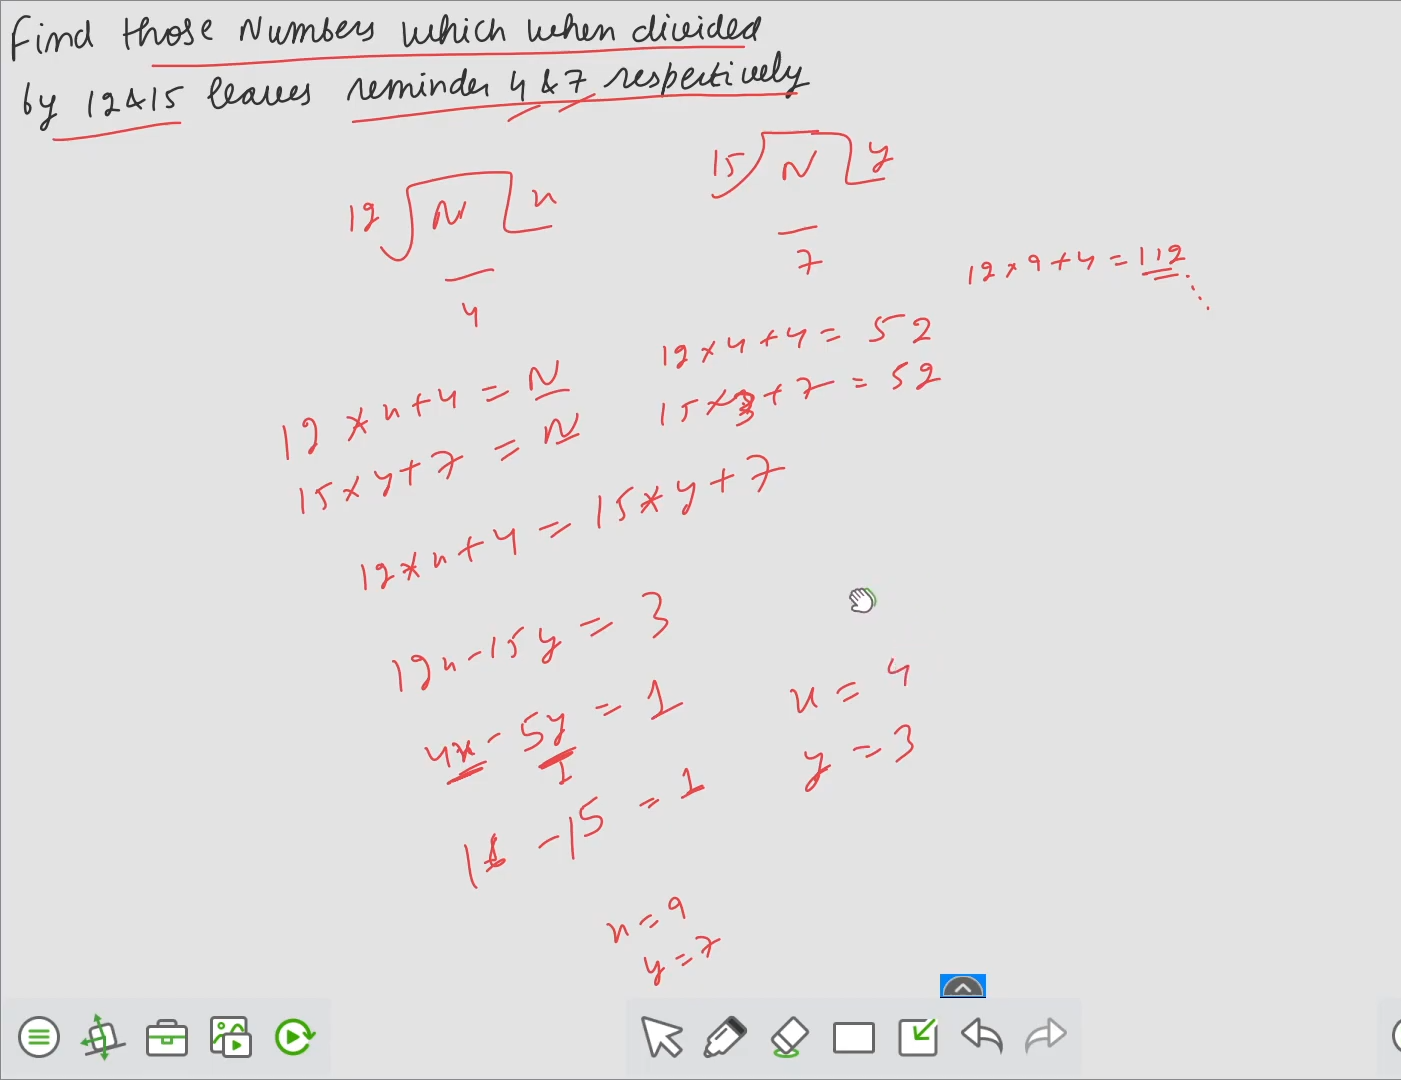 Find those Numbers which when divided
by 12 & 15 leaves reminder 4 & 7 respectively
12 N x
4
15 N y
7
12 × 9 + 4 = 112 ...
12 × 4 + 4 = 52
15 × 3 + 7 = 52
12 × x + 4 = N
15 × y + 7 = N
12 × x + 4 = 15 × y + 7
12x - 15y = 3
4x - 5y = 1
1
x = 4
y = 3
16 - 15 = 1
x = 9
y = 7